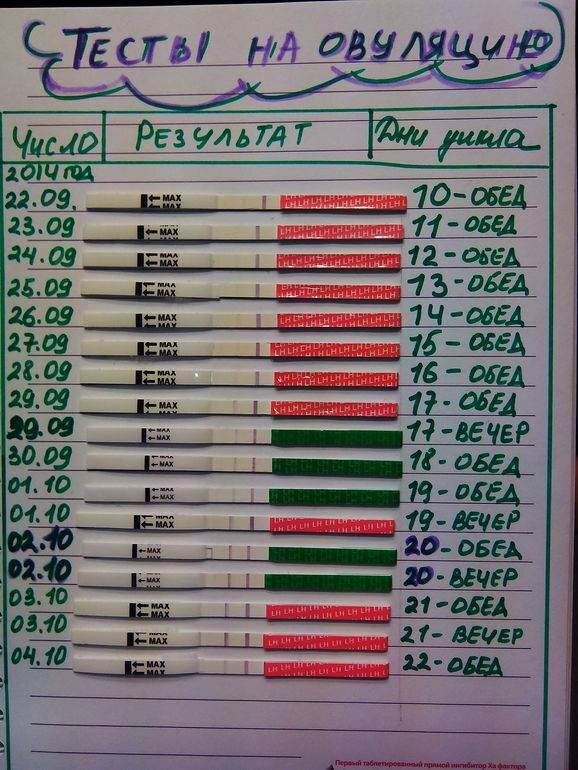 ТЕСТЫ НА ОВУЛЯЦИЮ
ЧИСЛО РЕЗУЛЬТАТ Дни цикла
2014 год
22.09. MAX LH LH LH LH LH LH 10-ОБЕД
23.09 MAX LH LH LH LH LH LH 11-ОБЕД
24.09 MAX LH LH LH LH LH LH 12-ОБЕД
25.09 MAX LH LH LH LH LH LH 13-ОБЕД
26.09 MAX LH LH LH LH LH LH 14-ОБЕД
27.09 MAX LH LH LH LH LH LH 15-ОБЕД
28.09 MAX LH LH LH LH LH LH 16-ОБЕД
29.09 MAX LH LH LH LH LH LH 17-ОБЕД
29.09 MAX 17-ВЕЧЕР
30.09 MAX 18-ОБЕД
01.10 MAX 19-ОБЕД
01.10 MAX LH LH LH LH LH LH 19-ВЕЧЕР
02.10 MAX 20-ОБЕД
02.10 MAX 20-ВЕЧЕР
03.10 MAX LH LH LH LH LH LH 21-ОБЕД
03.10 MAX LH LH LH LH LH LH 21-ВЕЧЕР
04.10 MAX LH LH LH LH LH LH 22-ОБЕД
Первый таблетированный прямой ингибитор Xa фактора